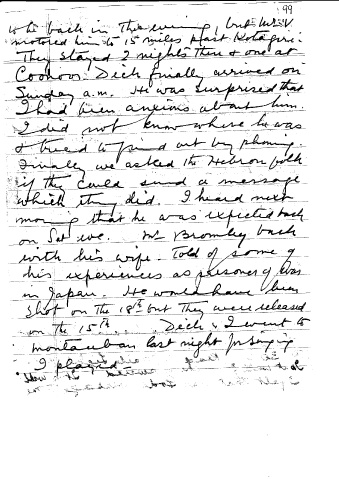 99
to be back in the evening but Mr V
motored him to 15 miles past Kotagiri.
They stayed 2 nights there & one at
Coonoor. Dick finally arrived on
Sunday a.m. He was surprised that
I had been anxious about him.
I did not know where he was
& tried to find out by phoning.
Finally we asked the Hebron folk
if they could send a message
which they did. I heard next
morning that he was expected back
on Sat eve. Mr Bromley back
with his wife. Told of some of
his experiences as prisoner of War
in Japan. He would have been
shot on the 18th but they were released
on the 15th. Dick & I went to
Montauban last night for singing
I played.